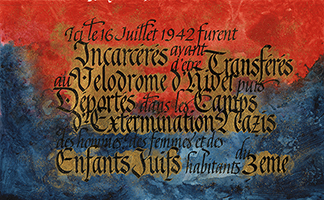 Ici le 16 Juillet 1942 furent
Incarcérés ayant
d'être Transférés
au Vélodrome d'Hiver puis
Déportés dans les Camps
d'Extermination Nazis
des hommes, des femmes et des
Enfants Juifs habitants du 3eme